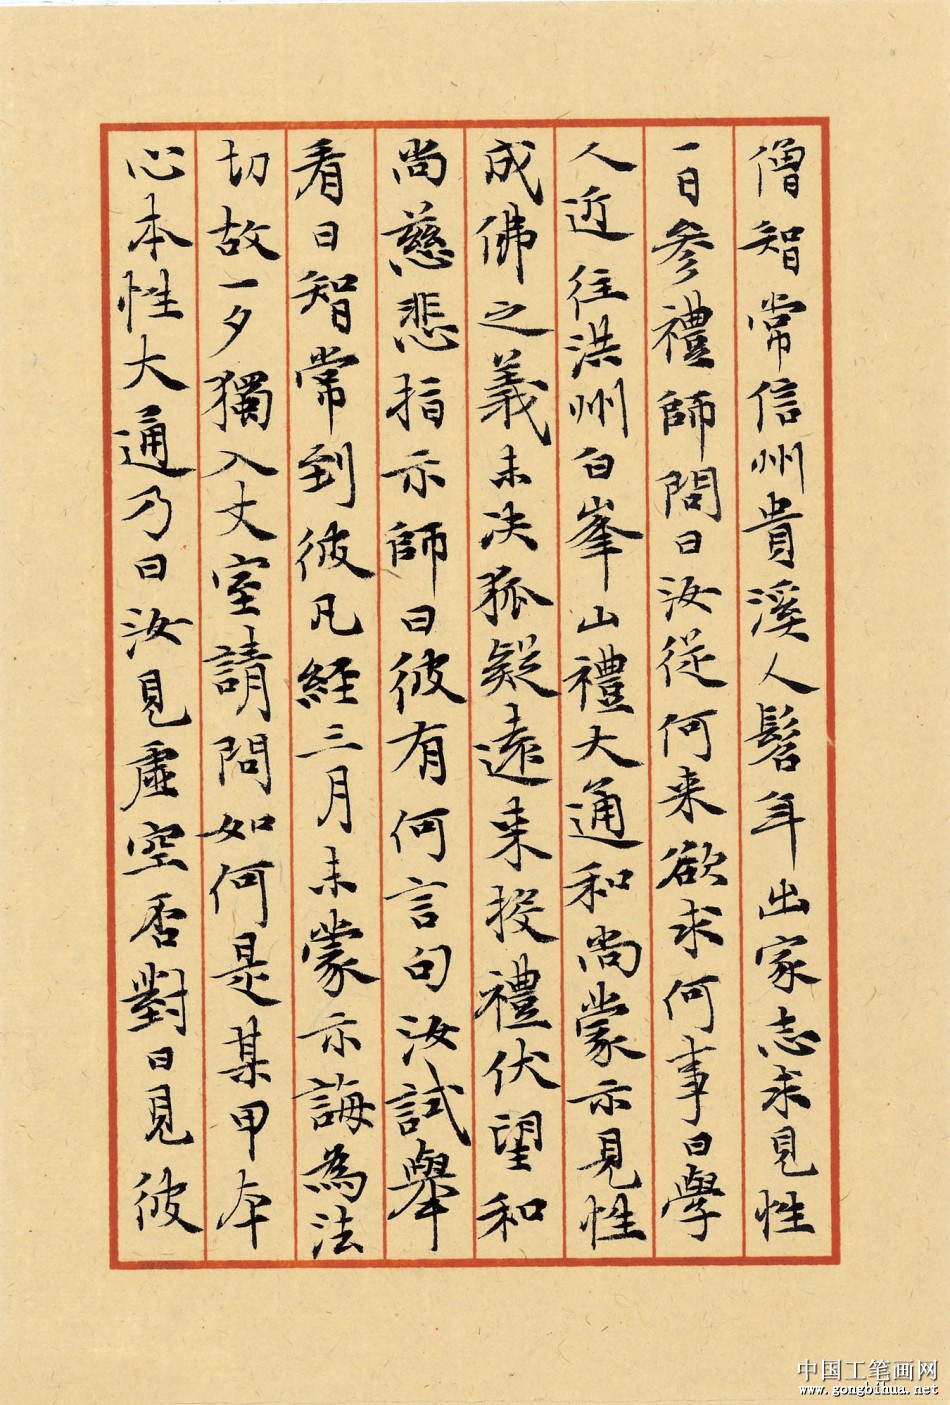 僧智常信州貴溪人髫年出家志求見性
一日參禮師問曰汝從何来欲求何事曰學
人近往洪州白峯山禮大通和尚蒙示見性
成佛之義未决狐疑遠来投禮伏望和
尚慈悲指示師曰彼有何言句汝試舉
看曰智常到彼凡経三月未蒙示誨為法
切故一夕獨入丈室請問如何是某甲本
心本性大通乃曰汝見虛空否對曰見彼
中国工笔画网
www.gongbihua.net